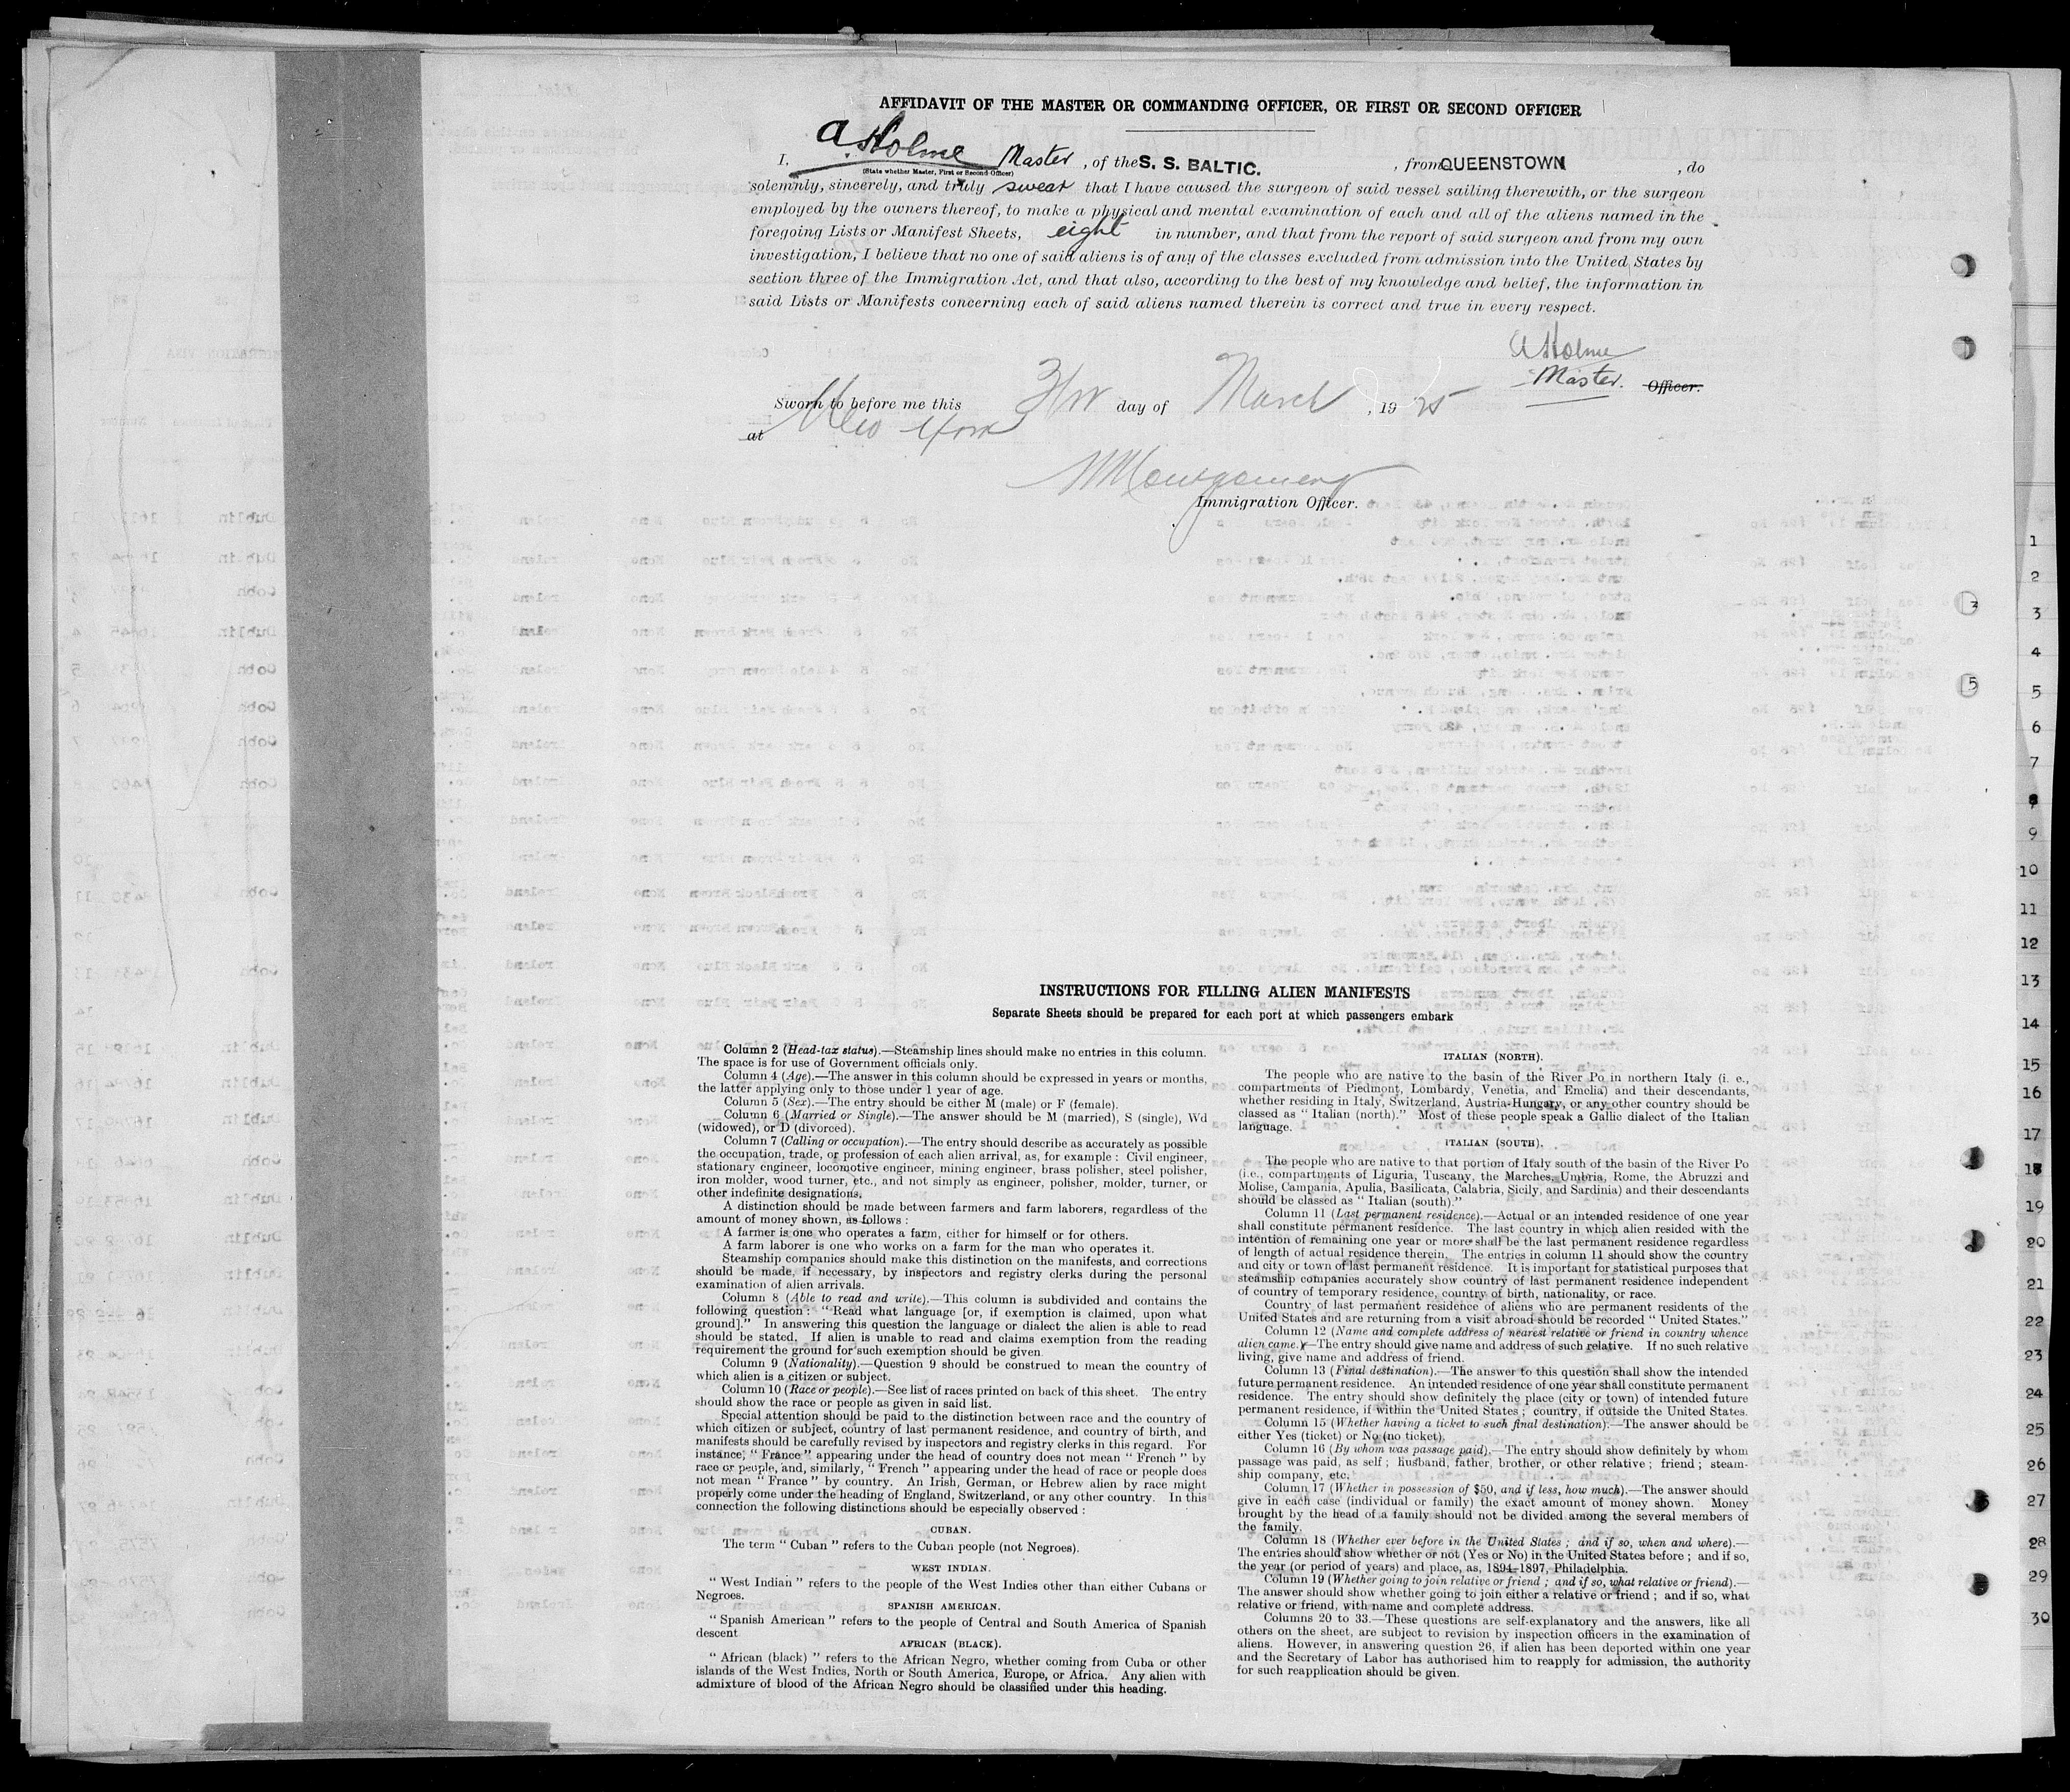 AFFIDAVIT OF THE MASTER OR COMMANDING OFFICER, OR FIRST OR SECOND OFFICER
I, A. Holme Master, of the S. S. BALTIC. , from QUEENSTOWN , do
(State whether Master, First or Second Officer)
solemnly, sincerely, and truly swear that I have caused the surgeon of said vessel sailing therewith, or the surgeon
employed by the owners thereof, to make a physical and mental examination of each and all of the aliens named in the
foregoing Lists or Manifest Sheets, eight in number, and that from the report of said surgeon and from my own
investigation, I believe that no one of said aliens is of any of the classes excluded from admission into the United States by
section three of the Immigration Act, and that also, according to the best of my knowledge and belief, the information in
said Lists or Manifests concerning each of said aliens named therein is correct and true in every respect.
A Holme
Master. Officer.
Sworn to before me this day of March , 19 25
at New York
Montgomery
Immigration Officer.
INSTRUCTIONS FOR FILLING ALIEN MANIFESTS
Separate Sheets should be prepared for each port at which passengers embark
Column 2 (Head-tax status).—Steamship lines should make no entries in this column.
The space is for use of Government officials only.
Column 4 (Age).—The answer in this column should be expressed in years or months,
the latter applying only to those under 1 year of age.
Column 5 (Sex).—The entry should be either M (male) or F (female).
Column 6 (Married or Single).—The answer should be M (married), S (single), Wd
(widowed), or D (divorced).
Column 7 (Calling or occupation).—The entry should describe as accurately as possible
the occupation, trade, or profession of each alien arrival, as, for example : Civil engineer,
stationary engineer, locomotive engineer, mining engineer, brass polisher, steel polisher,
iron molder, wood turner, etc., and not simply as engineer, polisher, molder, turner, or
other indefinite designations.
A distinction should be made between farmers and farm laborers, regardless of the
amount of money shown, as follows :
A farmer is one who operates a farm, either for himself or for others.
A farm laborer is one who works on a farm for the man who operates it.
Steamship companies should make this distinction on the manifests, and corrections
should be made, if necessary, by inspectors and registry clerks during the personal
examination of alien arrivals.
Column 8 (Able to read and write).—This column is subdivided and contains the
following question : “ Read what language [or, if exemption is claimed, upon what
ground].” In answering this question the language or dialect the alien is able to read
should be stated. If alien is unable to read and claims exemption from the reading
requirement the ground for such exemption should be given
Column 9 (Nationality).—Question 9 should be construed to mean the country of
which alien is a citizen or subject.
Column 10 (Race or people).—See list of races printed on back of this sheet. The entry
should show the race or people as given in said list.
Special attention should be paid to the distinction between race and the country of
which citizen or subject, country of last permanent residence, and country of birth, and
manifests should be carefully revised by inspectors and registry clerks in this regard. For
instance, “ France ” appearing under the head of country does not mean “ French ” by
race or people, and, similarly, “ French ” appearing under the head of race or people does
not mean “ France ” by country. An Irish, German, or Hebrew alien by race might
properly come under the heading of England, Switzerland, or any other country. In this
connection the following distinctions should be especially observed :
CUBAN.
The term “ Cuban ” refers to the Cuban people (not Negroes).
WEST INDIAN.
“ West Indian ” refers to the people of the West Indies other than either Cubans or
Negroes.
SPANISH AMERICAN.
“ Spanish American ” refers to the people of Central and South America of Spanish
descent
AFRICAN (BLACK).
“ African (black) ” refers to the African Negro, whether coming from Cuba or other
islands of the West Indies, North or South America, Europe, or Africa. Any alien with
admixture of blood of the African Negro should be classified under this heading.
ITALIAN (NORTH).
The people who are native to the basin of the River Po in northern Italy (i. e.,
compartments of Piedmont, Lombardy, Venetia, and Emelia) and their descendants,
whether residing in Italy, Switzerland, Austria-Hungary, or any other country should be
classed as “ Italian (north).” Most of these people speak a Gallic dialect of the Italian
language.
ITALIAN (SOUTH).
The people who are native to that portion of Italy south of the basin of the River Po
(i.e., compartments of Liguria, Tuscany, the Marches, Umbria, Rome, the Abruzzi and
Molise, Campania, Apulia, Basilicata, Calabria, Sicily, and Sardinia) and their descendants
should be classed as “ Italian (south).”
Column 11 (Last permanent residence).—Actual or an intended residence of one year
shall constitute permanent residence. The last country in which alien resided with the
intention of remaining one year or more shall be the last permanent residence regardless
of length of actual residence therein. The entries in column 11 should show the country
and city or town of last permanent residence. It is important for statistical purposes that
steamship companies accurately show country of last permanent residence independent
of country of temporary residence, country of birth, nationality, or race.
Country of last permanent residence of aliens who are permanent residents of the
United States and are returning from a visit abroad should be recorded “ United States.”
Column 12 (Name and complete address of nearest relative or friend in country whence
alien came.)—The entry should give name and address of such relative. If no such relative
living, give name and address of friend.
Column 13 (Final destination).—The answer to this question shall show the intended
future permanent residence. An intended residence of one year shall constitute permanent
residence. The entry should show definitely the place (city or town) of intended future
permanent residence, if within the United States ; country, if outside the United States.
Column 15 (Whether having a ticket to such final destination).—The answer should be
either Yes (ticket) or No (no ticket).
Column 16 (By whom was passage paid).—The entry should show definitely by whom
passage was paid, as self ; husband, father, brother, or other relative ; friend ; steam-
ship company, etc.
Column 17 (Whether in possession of $50, and if less, how much).—The answer should
give in each case (individual or family) the exact amount of money shown. Money
brought by the head of a family should not be divided among the several members of
the family.
Column 18 (Whether ever before in the United States ; and if so, when and where).—
The entries should show whether or not (Yes or No) in the United States before ; and if so,
the year (or period of years) and place, as, 1894–1897, Philadelphia.
Column 19 (Whether going to join relative or friend ; and if so, what relative or friend).—
The answer should show whether going to join either a relative or friend ; and if so, what
relative or friend, with name and complete address.
Columns 20 to 33.—These questions are self-explanatory and the answers, like all
others on the sheet, are subject to revision by inspection officers in the examination of
aliens. However, in answering question 26, if alien has been deported within one year
and the Secretary of Labor has authorised him to reapply for admission, the authority
for such reapplication should be given.
1
2
3
4
5
6
7
8
9
10
11
12
13
14
15
16
17
18
19
20
21
22
23
24
25
26
27
28
29
30